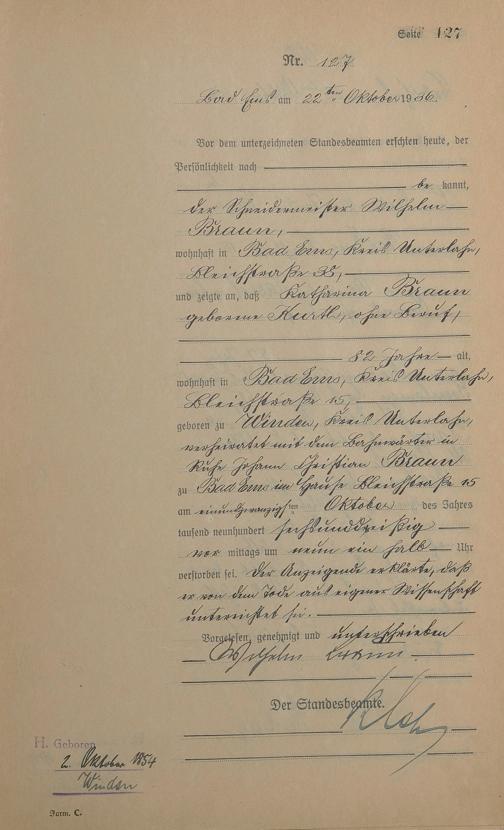 Seite 127
Nr. 127
Bad Ems am 22ten Oktober 1936.
Vor dem unterzeichneten Standesbeamten erschien heute, der
Persönlichkeit nach
be kannt,
der Schneidermeister Wilhelm
Braun,
wohnhaft in Bad Ems, Kreis Unterlahn,
Bleichstraße 35,
und zeigte an, daß Katharina Braun
geborene ohne Beruf,
82 Jahre alt,
wohnhaft in Bad Ems, Kreis Unterlahn,
Bleichstraße 15,
geboren zu Winden, Kreis Unterlahn,
verheiratet mit dem Bahnwärter in
Ruhe Johann Christian Braun
zu Bad Ems im Hause Bleichstraße 15
am einundzwanzigsten Oktober des Jahres
tausend neunhundert sechsunddreißig
vor mittags um neun ein halb Uhr
verstorben sei. Der Anzeigende erklärte, daß
er von dem Tode aus eigener Wissenschaft
unterrichtet sei.
Vorgelesen, genehmigt und unterschrieben
Wilhelm Braun.
Der Standesbeamte.
H. Geboren
2. Oktober 1854
Winden
Form. C.